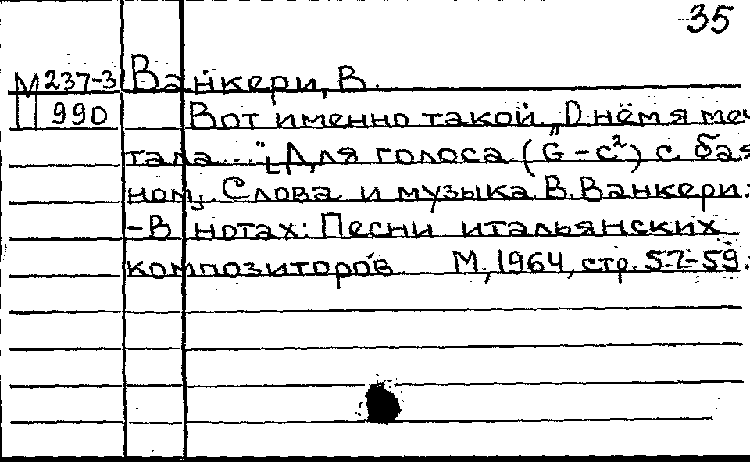 35
М 237-3 Ванкери, В.
990 Вот именно такой. „О нём я меч
тала..." [Для голоса (G-c²) с бая
ном]. Слова и музыка В. Ванкери.
-В нотах: Песни итальянских
композиторов М., 1964, стр. 57-59.